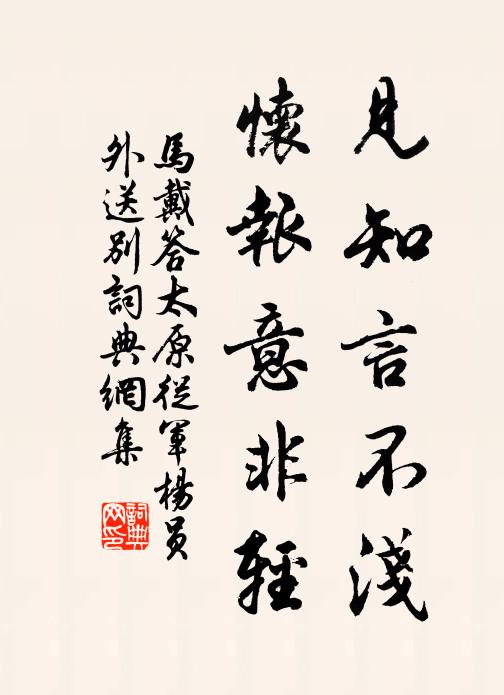 見知言不淺
懷報意非輕
馬戴答太原從軍楊員
外送別詞典網集
詞典
网印